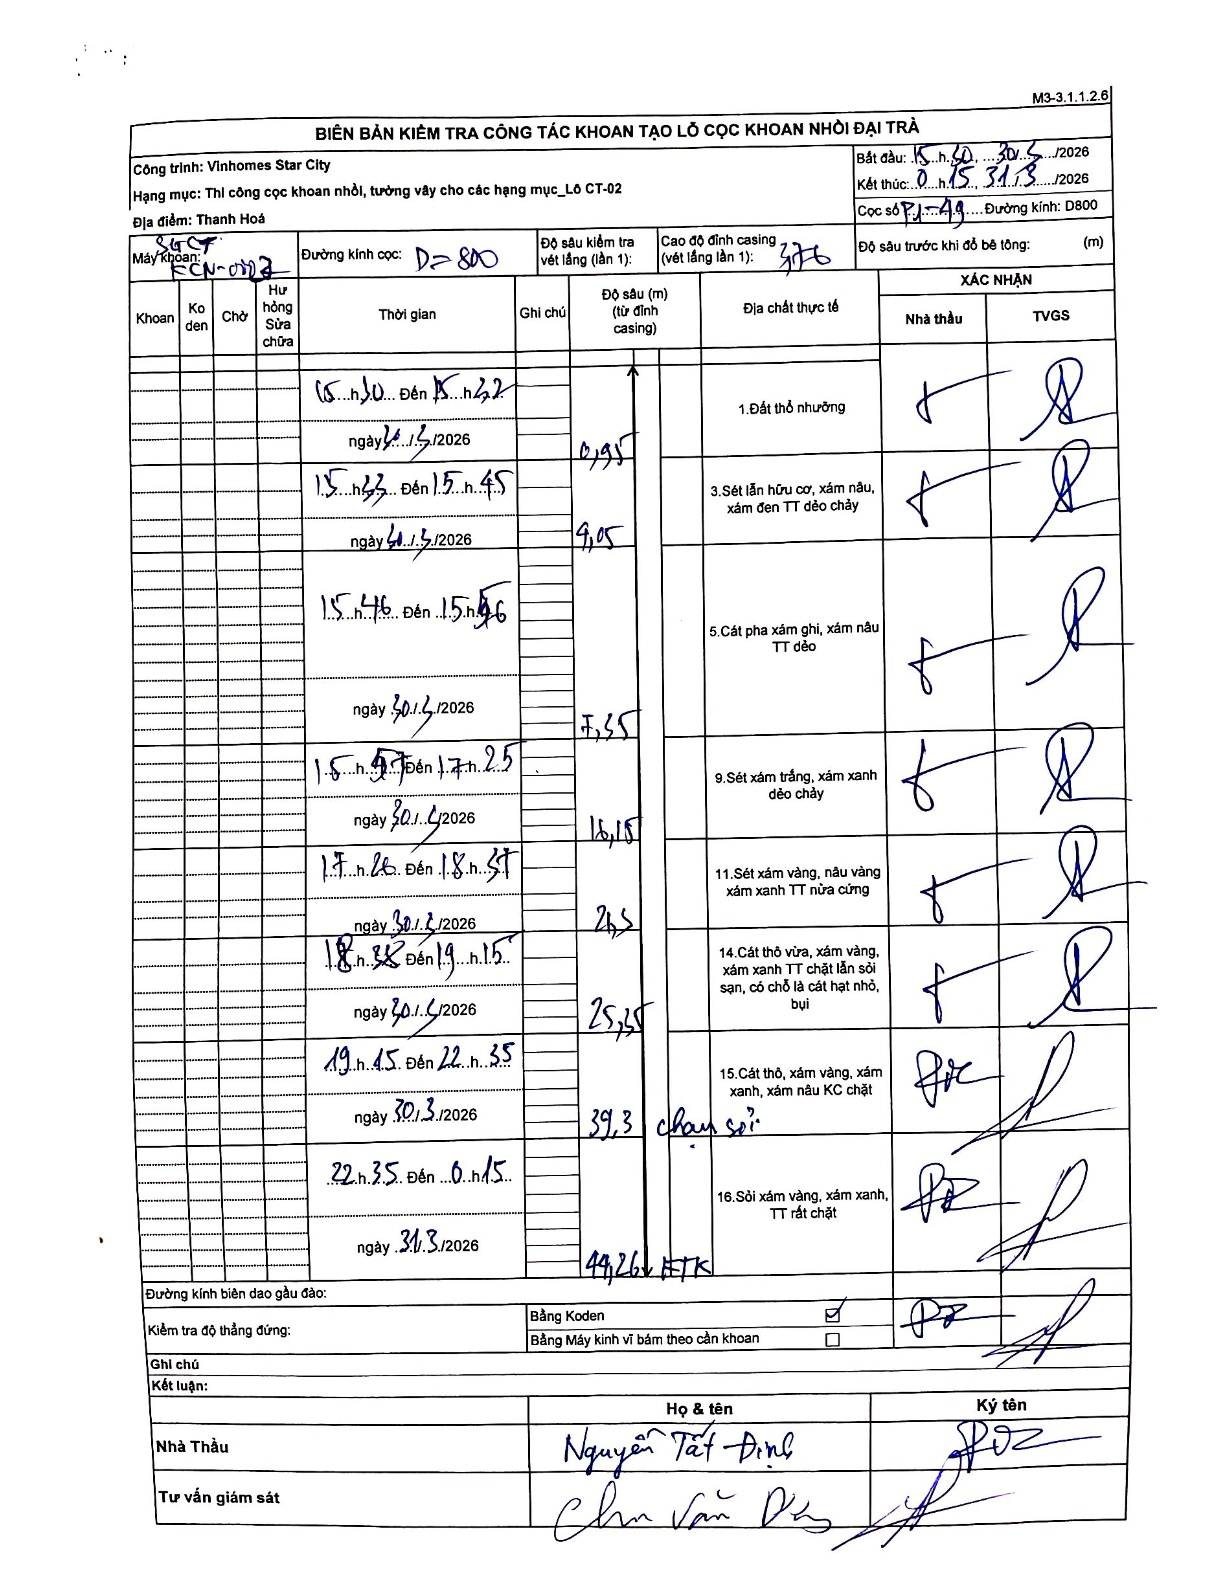 M3-3.1.1.2.6
BIÊN BẢN KIỂM TRA CÔNG TÁC KHOAN TẠO LỖ CỌC KHOAN NHỒI ĐẠI TRÀ
Công trình: Vinhomes Star City
Hạng mục: Thi công cọc khoan nhồi, tường vây cho các hạng mục_Lô CT-02
Địa điểm: Thanh Hoá
Bắt đầu: 15 h 30, 30/3/2026
Kết thúc: 0 h 15, 31/3/2026
Cọc số P1-49 Đường kính: D800
SGCT
Máy khoan:
Đường kính cọc: D=800
Độ sâu kiểm tra vét lắng (lần 1):
Cao độ đỉnh casing (vét lắng lần 1): 3,76
Độ sâu trước khi đổ bê tông: (m)
Khoan
Ko den
Chờ
Hư hỏng Sửa chữa
Thời gian
Ghi chú
Độ sâu (m) (từ đỉnh casing)
Địa chất thực tế
XÁC NHẬN
Nhà thầu
TVGS
15 h 30 Đến 15 h 32
ngày 30/3/2026
0,95
1.Đất thổ nhưỡng
15 h 33 Đến 15 h 45
ngày 30/3/2026
4,05
3.Sét lẫn hữu cơ, xám nâu,
xám đen TT dẻo chảy
15 h 46 Đến 15 h 56
ngày 30/3/2026
7,35
5.Cát pha xám ghi, xám nâu
TT dẻo
15 h 57 Đến 17 h 25
ngày 30/3/2026
16,15
9.Sét xám trắng, xám xanh
dẻo chảy
17 h 26 Đến 18 h 37
ngày 30/3/2026
11.Sét xám vàng, nâu vàng
xám xanh TT nửa cứng
18 h 38 Đến 19 h 15
ngày 30/3/2026
25,35
14.Cát thô vừa, xám vàng,
xám xanh TT chặt lẫn sỏi
sạn, có chỗ là cát hạt nhỏ,
bụi
19 h 15 Đến 22 h 35
ngày 30/3/2026
39,3 chạm sỏi
15.Cát thô, xám vàng, xám
xanh, xám nâu KC chặt
22 h 35 Đến 0 h 15
ngày 31/3/2026
44,26 KTK
16.Sỏi xám vàng, xám xanh,
TT rất chặt
Đường kính biên dao gầu đào:
Kiểm tra độ thẳng đứng:
Bằng Koden ☑
Bằng Máy kinh vĩ bám theo cần khoan ☐
Ghi chú
Kết luận:
Họ & tên
Ký tên
Nhà Thầu
Nguyễn Tất Định
Tư vấn giám sát
Chu Văn